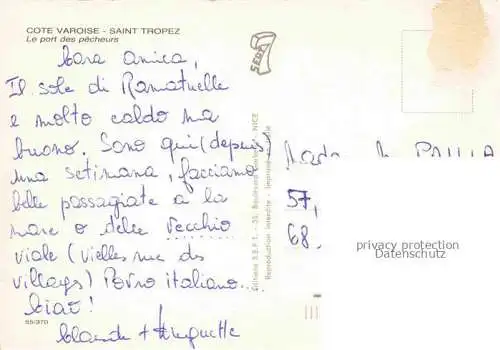 COTE VAROISE - SAINT TROPEZ
Le port des pêcheurs
Cara amica,
Il sole di Ramatuelle
e molto caldo ma
buono. Sono qui (depuis)
una setimana, facciamo
belle passagiate a la
mare o delle vecchio
viale (vielles rue des
villages)
italiano...
Ciao!
Claude +
85/370
SEPT 7
Editions S.E.P.T. - 35, Boulevard NICE
Reproduction interdite -
57,
68.
privacy protection
Datenschutz